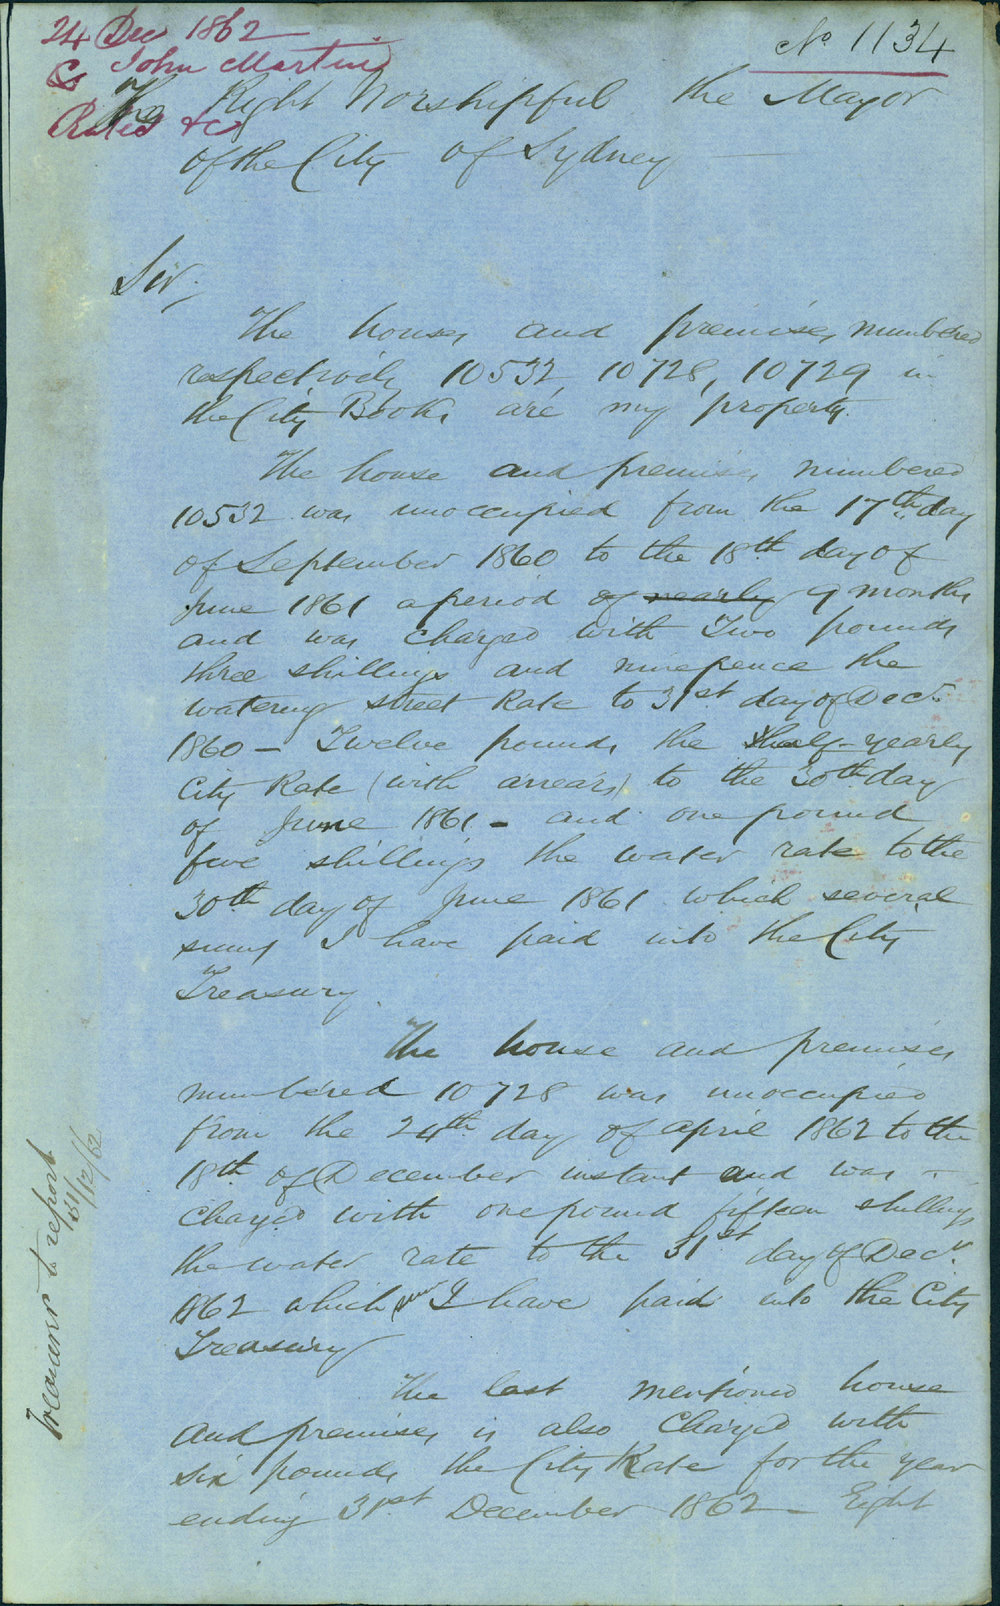 24 Dec 1862
John Martin
Rates &c
No 1134
The Right Worshipful the Mayor
of the City of Sydney
Sir,
The houses and premises numbered
respectively 10532, 10728, 10729 in
the City Books are my property.
The house and premises numbered
10532 was unoccupied from the 17th day
of September 1860 to the 18th day of
June 1861 a period of nearly 9 months
and was charged with Two pounds
three shillings and ninepence the
watering street Rate to 31st day of Decr
1860 – Twelve pounds the half-yearly
City Rate (with arrears) to the 30th day
of June 1861 – and one pound
five shillings the water rate to the
30th day of June 1861 which several
sums I have paid into the City
Treasury.
The house and premises
numbered 10728 was unoccupied
from the 24th day of April 1862 to the
18th of December instant and was
charged with one pound fifteen shillings
the water rate to the 31st day of Decr
1862 which sum I have paid into the City
Treasury
The last mentioned house
and premises is also charged with
six pounds the City Rate for the year
ending 31st December 1862 – Eight
Treasurer to report
31/12/62